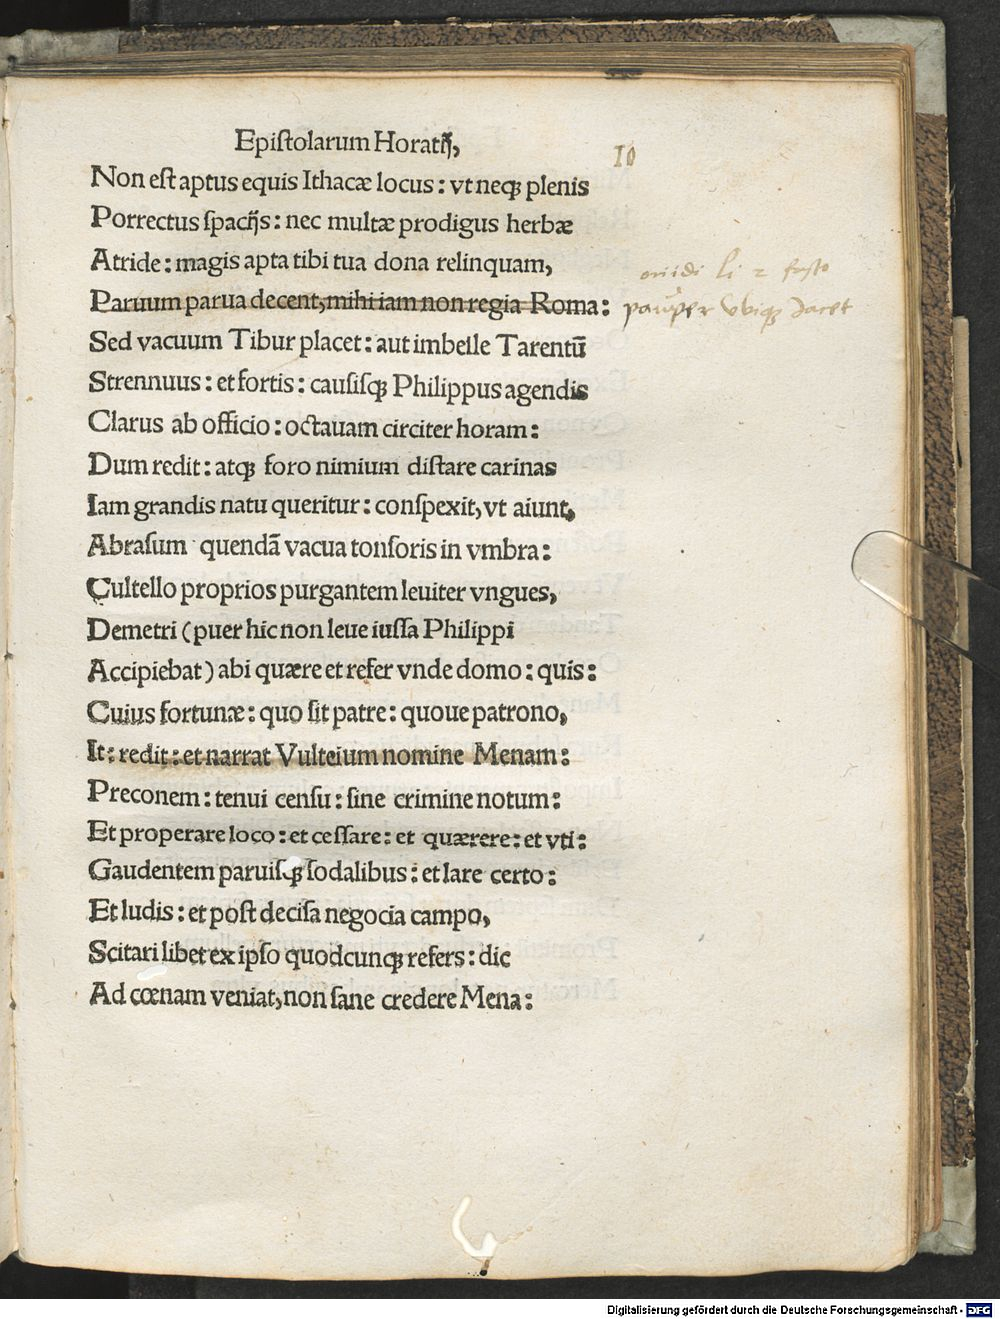 Epistolarum Horatij,
10
Non est aptus equis Ithacæ locus: vt neqꝫ plenis
Porrectus spacijs: nec multæ prodigus herbæ
Atride: magis apta tibi tua dona relinquam,
ouidi li 2 fasto
Paruum parua decent, mihi iam non regia Roma:
pauper vbiqꝫ Jacet
Sed vacuum Tibur placet: aut imbelle Tarentū
Strennuus: et fortis: causisqꝫ Philippus agendis
Clarus ab officio: octauam circiter horam:
Dum redit: atqꝫ foro nimium distare carinas
Iam grandis natu queritur: conspexit, vt aiunt,
Abrasum quendā vacua tonsoris in vmbra:
Cultello proprios purgantem leuiter vngues,
Demetri (puer hic non leue iussa Philippi
Accipiebat) abi quære et refer vnde domo: quis:
Cuius fortunæ: quo sit patre: quoue patrono,
It: redit: et narrat Vulteium nomine Menam:
Preconem: tenui censu: sine crimine notum:
Et properare loco: et cessare: et quærere: et vti:
Gaudentem paruisqꝫ sodalibus: et lare certo:
Et ludis: et post decisa negocia campo,
Scitari libet ex ipso quodcunqꝫ refers: dic
Ad cœnam veniat, non sane credere Mena:
Digitalisierung gefördert durch die Deutsche Forschungsgemeinschaft - DFG